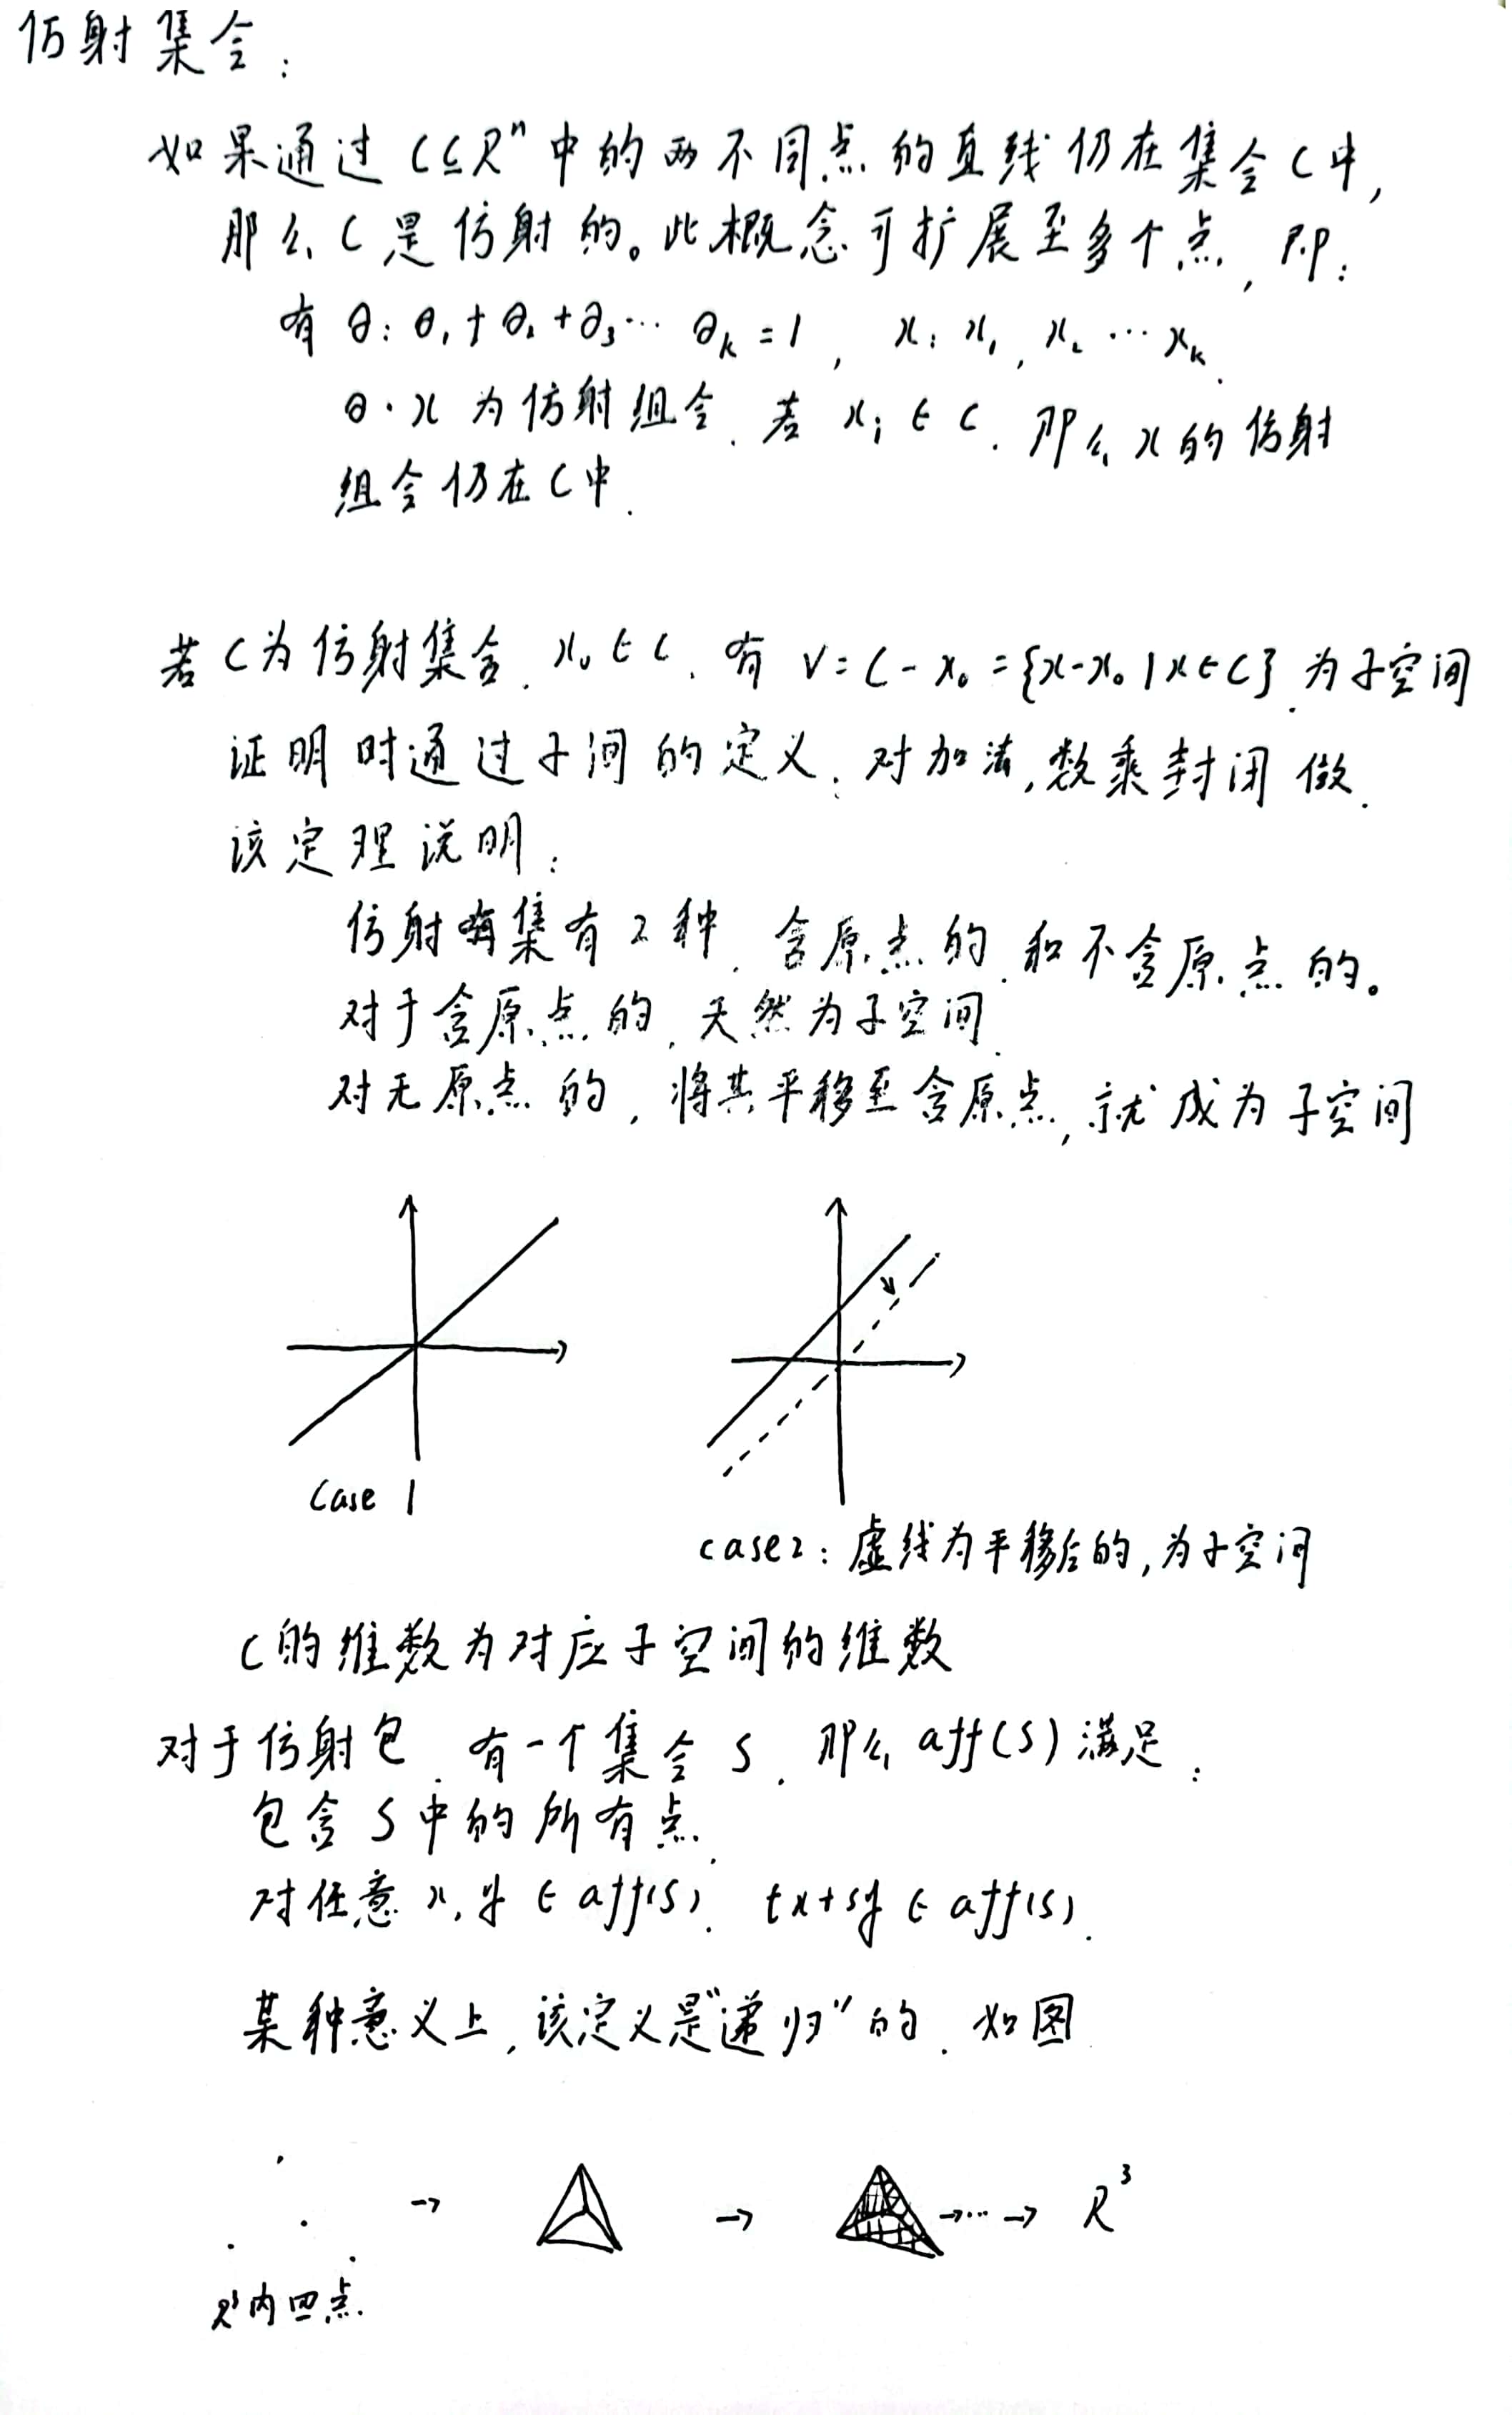 仿射集合:
如果通过 C⊆Rⁿ 中的两不同点的直线仍在集合C中,
那么C是仿射的。此概念可扩展至多个点, 即:
有 θ: θ₁+θ₂+θ₃… θₖ=1, x: x₁, x₂ … xₖ.
θ·x 为仿射组合. 若 xᵢ ∈ C. 那么x的仿射
组合仍在C中.
若C为仿射集合. x₀∈C. 有 V=C-x₀={x-x₀|x∈C}.为子空间
证明时通过子间的定义: 对加法,数乘封闭做.
该定理说明:
仿射集有2种. 含原点的.和不含原点的。
对于含原点的, 天然为子空间.
对无原点的, 将其平移至含原点, 就成为子空间
Case 1
case2: 虚线为平移后的,为子空间
C的维数为对应子空间的维数
对于仿射包. 有一个集合 S. 那么 aff(S) 满足:
包含S中的所有点.
对任意 x,y ∈ aff(S). tx+sy ∈ aff(S).
某种意义上,该定义是"递归"的. 如图
→ → →…→ R³
R³内四点.